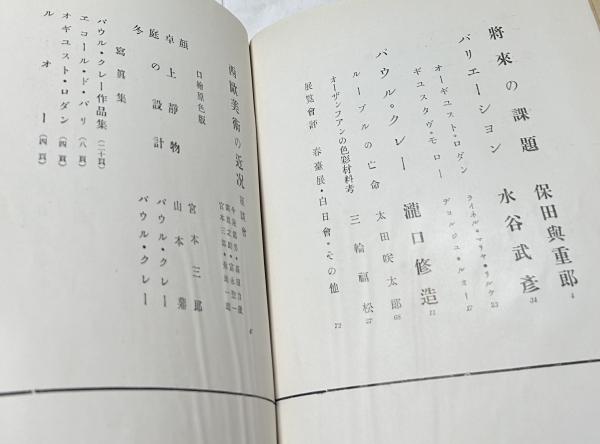 將來の課題 保田與重郎 4
バリエーション 水谷武彥 34
オーギュスト・ロダン ライネル・マリヤ・リルケ 23
ギュスタヴ・モロー ヂョルジュ・ルオー 17
パウル・クレー 瀧口修造 11
ルーブルの亡命 太田咲太郎 68
オーザンファンの色彩材料考 三輪福松 27
展覧會評 春臺展・白日會・その他 72
西歐美術の近況 座談會
宮本三郎
口繪原色版
顏 宮本三郎
卓上靜物 山本
庭の設計 パウル・クレー
冬 パウル・クレー
寫眞集
パウル・クレー作品集 (二十頁)
エコール・ド・パリ (八頁)
オギユスト・ロダン (四頁)
ルオー (四頁)